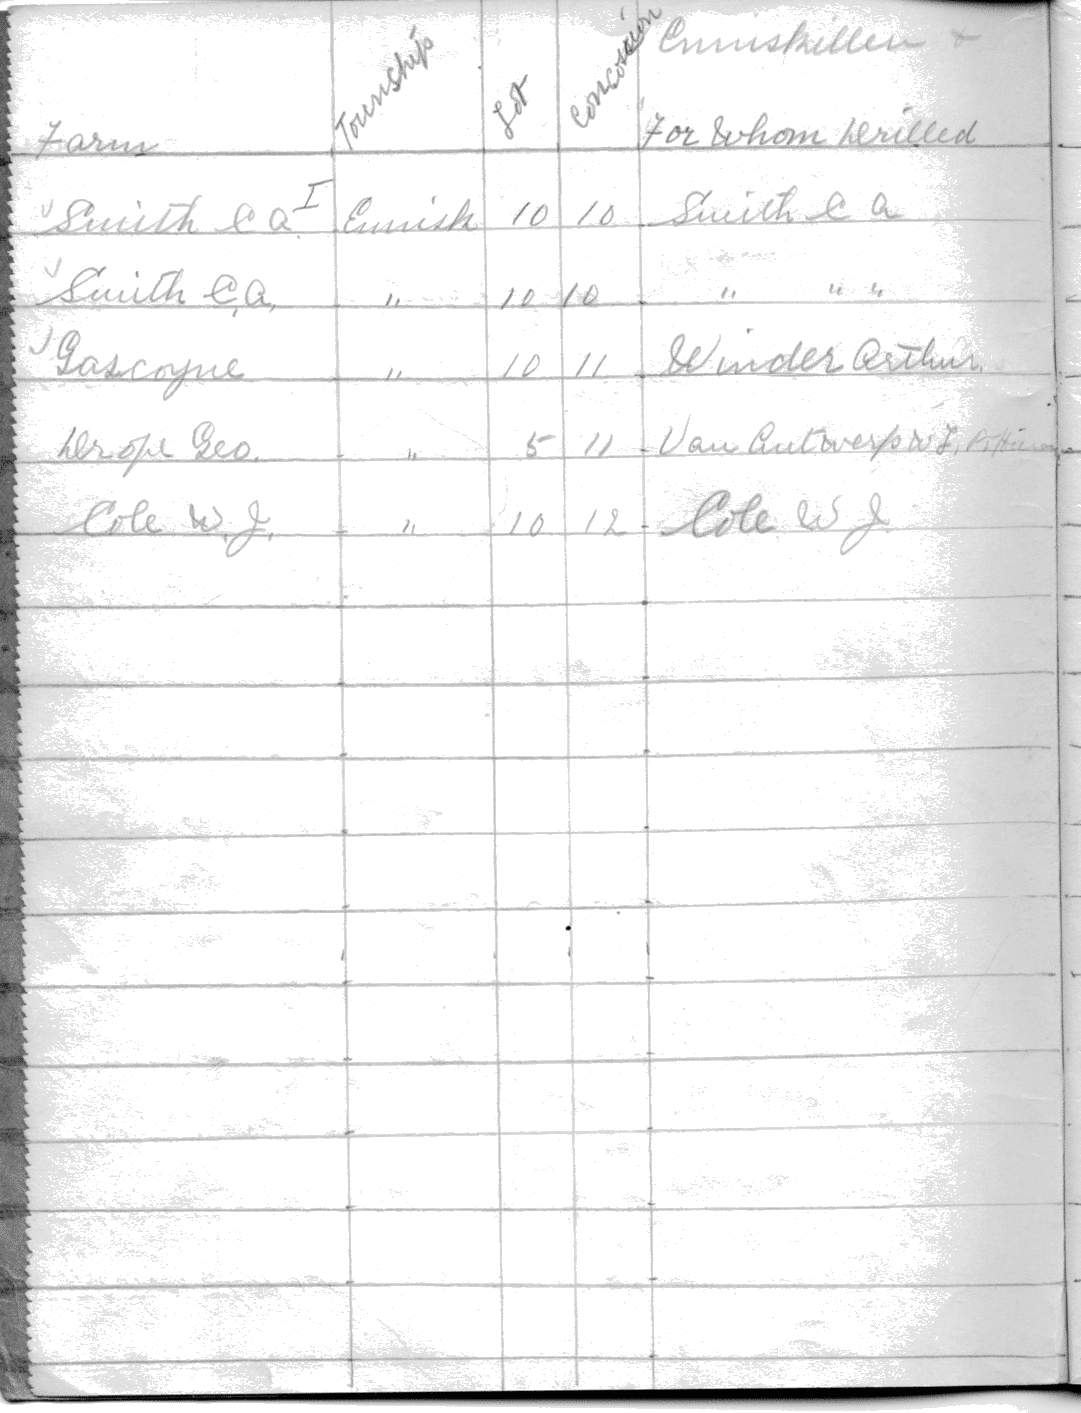 Enniskillen &
Farm Township Lot Concession For Whom Drilled
Smith C A I Ennisk 10 10 Smith C A
Smith C,A, " 10 10 " " "
Gascoyne " 10 11 Winder Arthur
Drope Geo. " 5 11 Van Antwerp W J,
Cole W.J. " 10 12 Cole W J